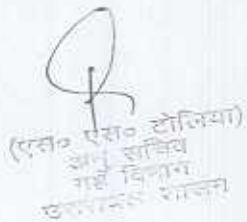 (एस० एस० टोलिया)
अनु सचिव
गृह विभाग
उत्तराखण्ड शासन